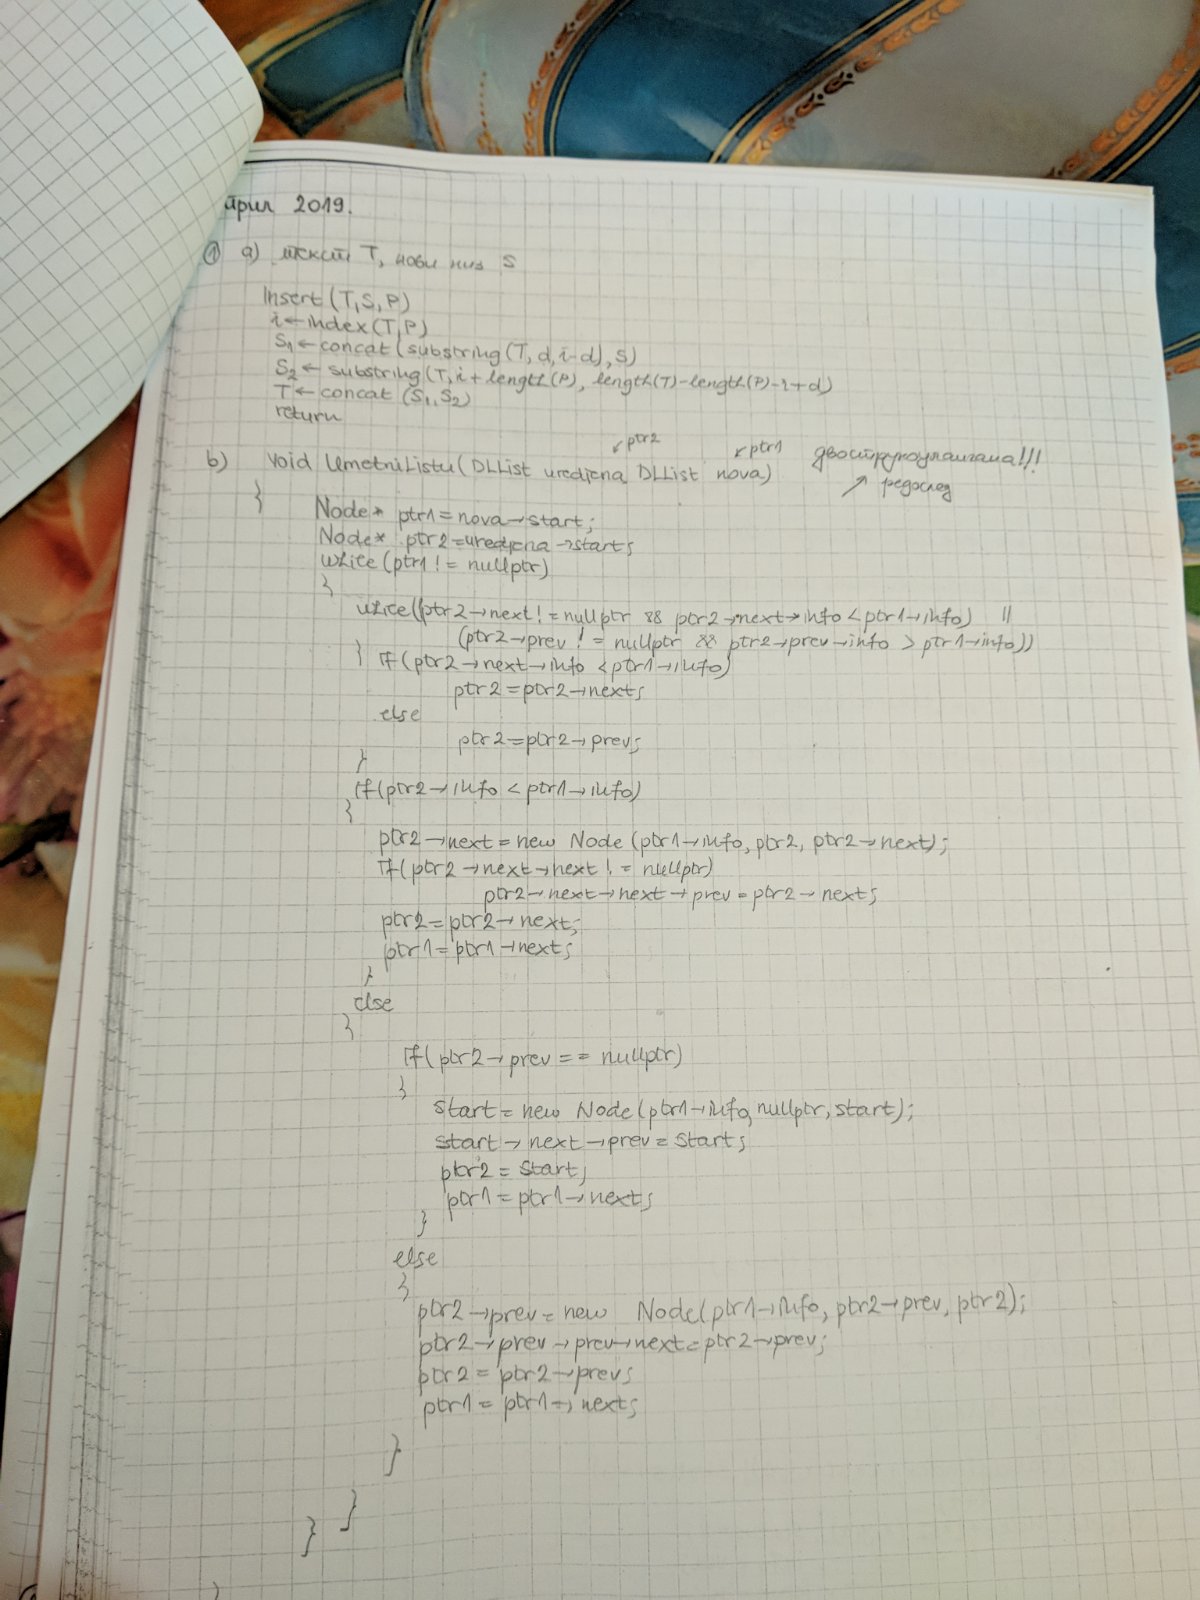 април 2019.
① a) текст T, нови низ S
Insert (T, S, P)
i ← index (T, P)
S1 ← concat (substring (T, d, i-d), S)
S2 ← substring (T, i + length (P), length(T) - length(P) - i + d)
T ← concat (S1, S2)
return
↙ ptr2 ↙ ptr1
b) void UmetniListu (DLList uredjena, DLList nova) двоструколанчана!!!
↗ редослед
{
Node* ptr1 = nova → start;
Node* ptr2 = uredjena → start;
while (ptr1 != nullptr)
{
while((ptr2 → next != nullptr && ptr2 → next → info < ptr1 → info) ||
(ptr2 → prev != nullptr && ptr2 → prev → info > ptr1 → info))
{ if (ptr2 → next → info < ptr1 → info)
ptr2 = ptr2 → next;
else
ptr2 = ptr2 → prev;
}
if (ptr2 → info < ptr1 → info)
{
ptr2 → next = new Node (ptr1 → info, ptr2, ptr2 → next);
if (ptr2 → next → next != nullptr)
ptr2 → next → next → prev = ptr2 → next;
ptr2 = ptr2 → next;
ptr1 = ptr1 → next;
}
else
{
if (ptr2 → prev == nullptr)
{
start = new Node (ptr1 → info, nullptr, start);
start → next → prev = start;
ptr2 = start;
ptr1 = ptr1 → next;
}
else
{
ptr2 → prev = new Node (ptr1 → info, ptr2 → prev, ptr2);
ptr2 → prev → prev → next = ptr2 → prev;
ptr2 = ptr2 → prev;
ptr1 = ptr1 → next;
}
}
}